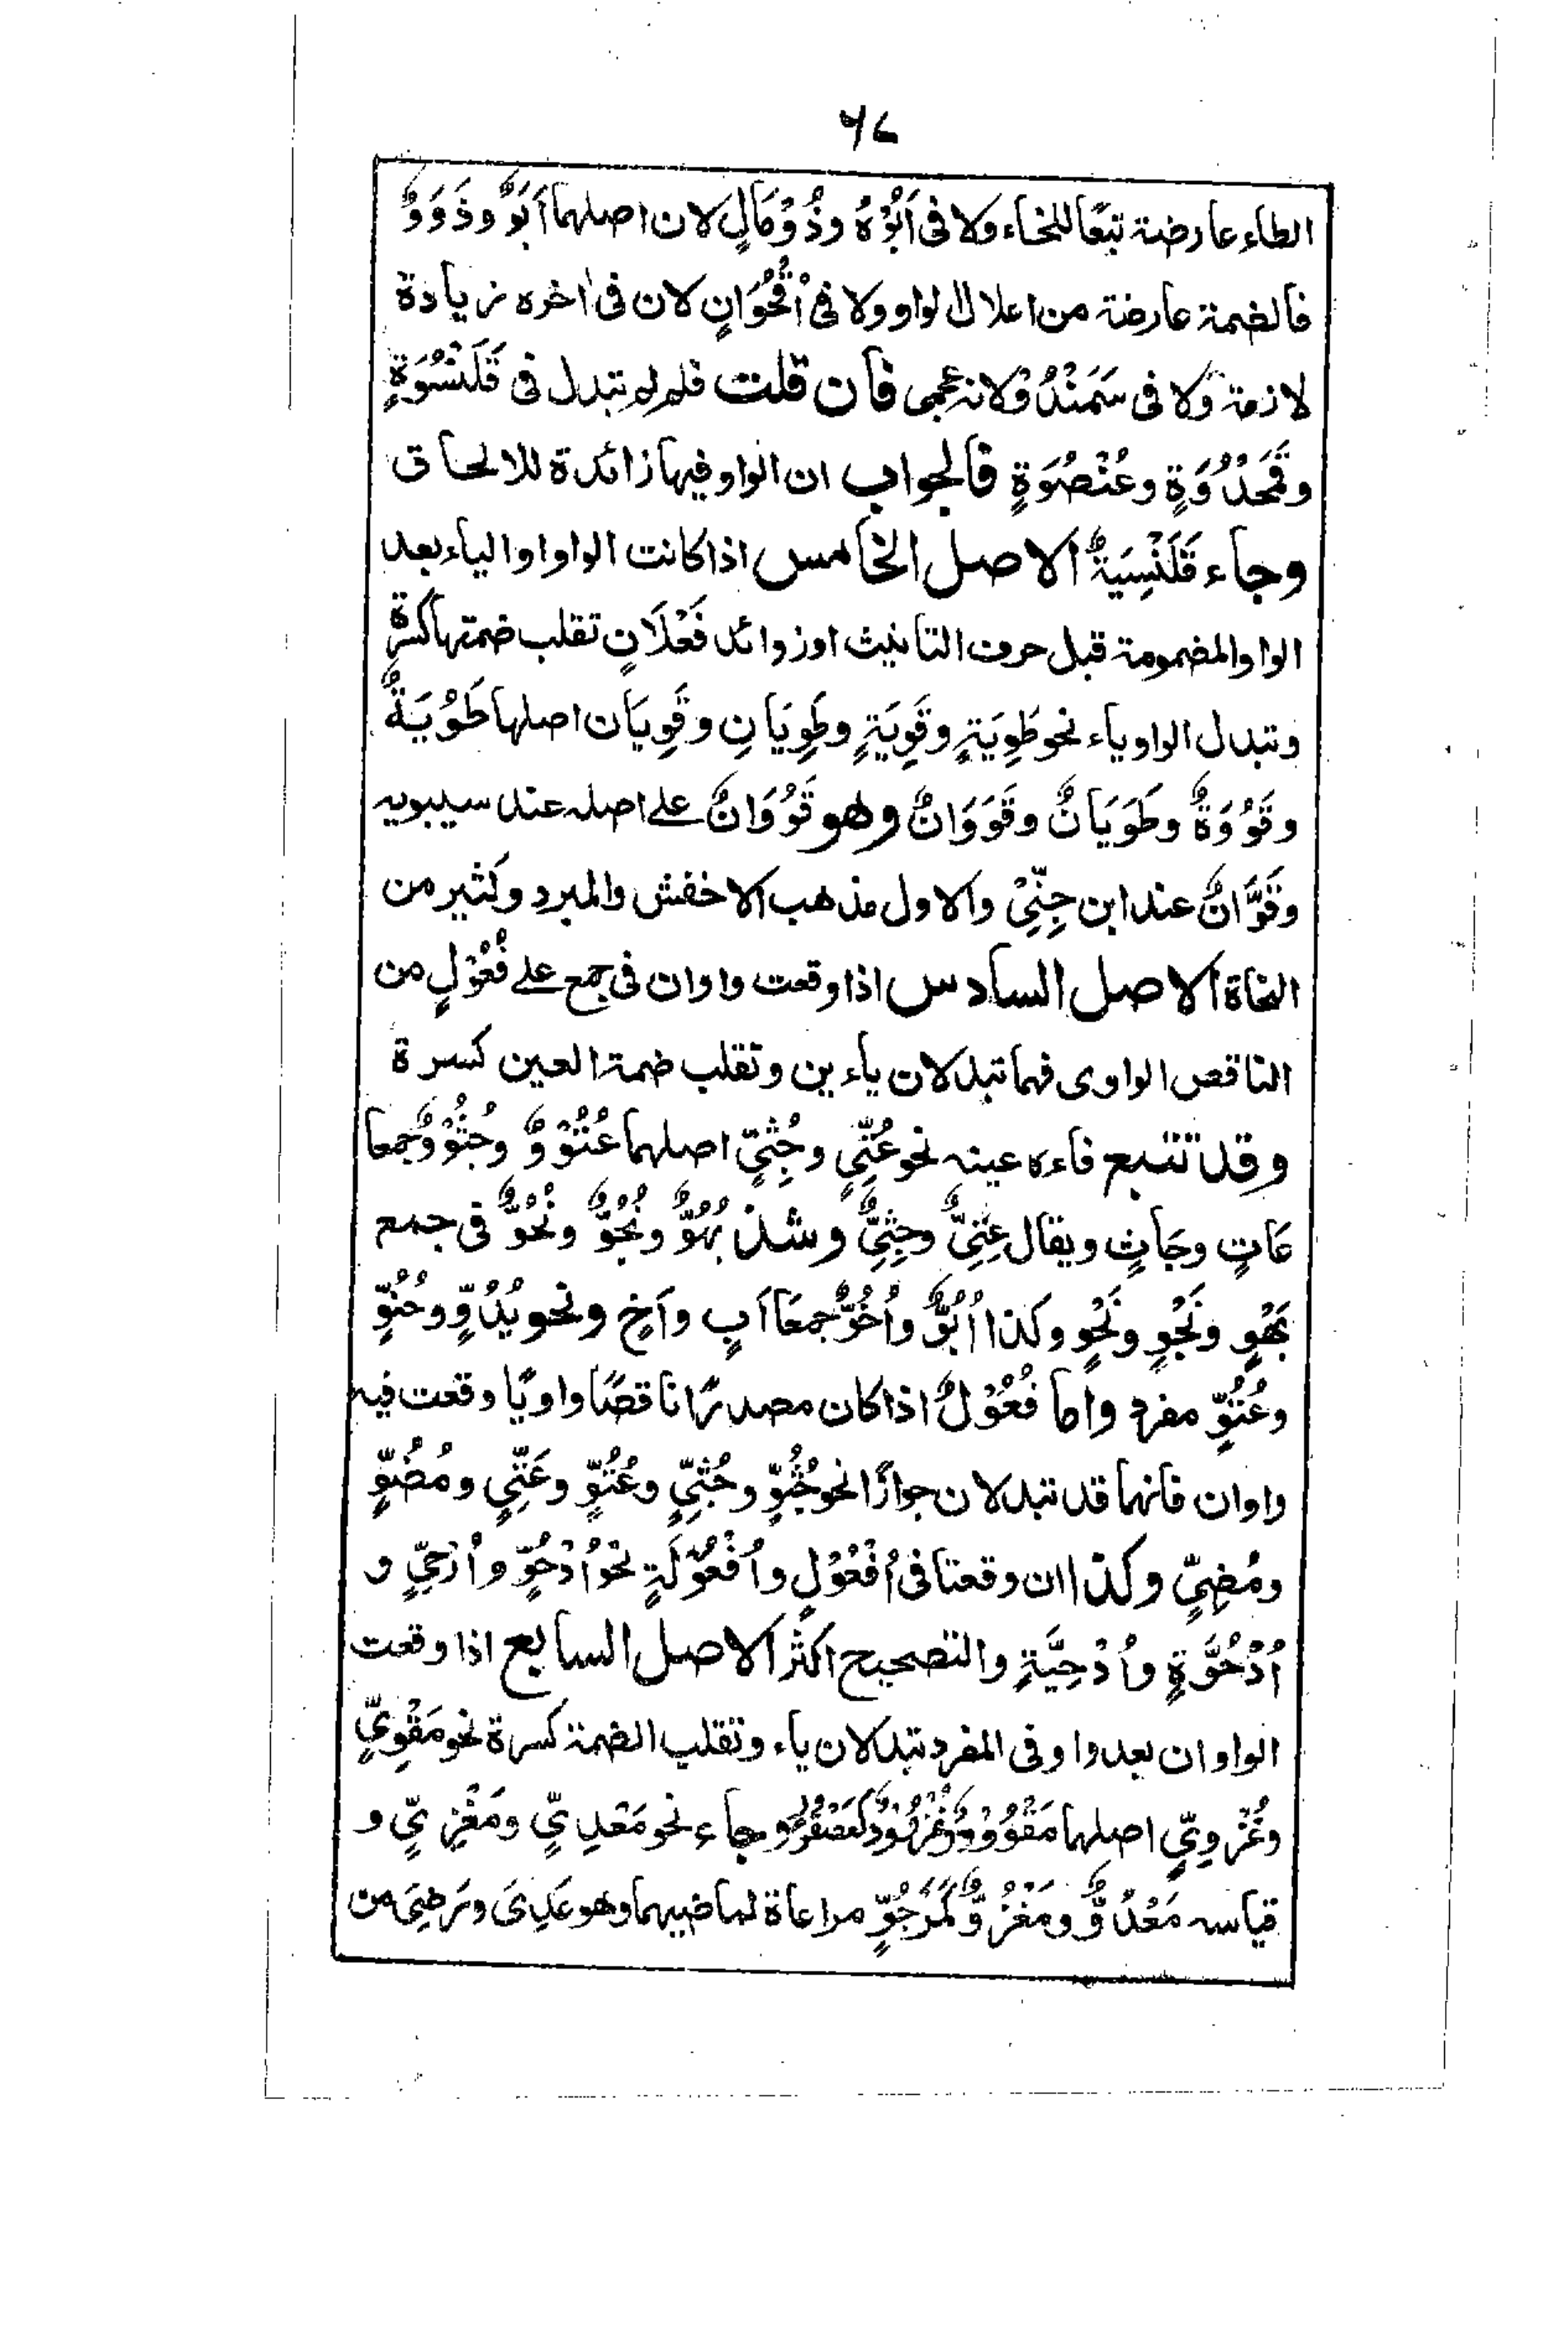 ۶۷
الطاء عارضة تبعًا للخاء ولا فى اَبُوْهُ وذُوْمَالٍ لان اصلهما اَبَوٌ وذَوَوٌ
فالضمة عارضة من اعلال الواو ولا فى اُقْحُوَانٍ لان فى اٰخره زيادة
لازمة ولا فى سَمَنْدُوْ لانه عجمى فان قلت فلم لم تبدل فى قَلَنْسُوَةٍ
وقَمَحْدُوَةٍ وعُنْصُوَةٍ فالجواب ان الواو فيها زائدة للالحاق
وجاء قَلَنْسِيَةٌ الاصل الخامس اذا كانت الواو او الياء بعد
الواو المضمومة قبل حرف التانيث اوزوائد فَعْلَانٍ تقلب ضمتها كسرة
وتبدل الواو ياء نحو طَوِيَةٍ وقَوِيَةٍ وطَوِيَانِ وقَوِيَان اصلها طَوُيَةٌ
وقَوُوَةٌ وطَوَيَانٌ وقَوَوَانٌ وهو قَوُوَانٌ على اصله عند سيبويه
وقَوَّانٌ عند ابن جِنِّىْ والاول مذهب الاخفش والمبرد وكثير من
النحاة الاصل السادس اذا وقعت واوان فى جمع على فُعُوْلٍ من
الناقص الواوى فهما تبدلان ياءين وتقلب ضمة العين كسرة
وقد تتبع فاءه عينه نحو عُتِّىٍ وجُثِىٍّ اصلهما عُتُوْوٌ وجُثُوْوٌ جمعا
عَاتٍ وجَاثٍ ويقال عِتِىٌّ وجِثِىٌّ وشذ بُهُوٌّ ونُجُوٌّ ونُحُوٌّ فى جمع
بَهْوٍ ونَجْوٍ ونَحْوٍ وكذا اُبُوٌّ واُخُوٌّ جمعَا اَبٍ واَخٍ ونحو بُدُوٍّ وحُنُوٍّ
وعُتُوٍّ مفرد واما فُعُوْلٌ اذا كان مصدرًا ناقصًا واويًا وقعت فيه
واوان فانهما قد تبدلان جوازًا نحو جُثُوٍّ وجُثِىٍّ وعُتُوٍّ وعَتِّىٍ ومُضُوٍّ
ومُضِىٍّ وكذا ان وقعتا فى اُفْعُوْلٍ واُفْعُوْلَةٍ نحو اُدْحُوٍّ واُدْحِىٍّ و
اُدْحُوَّةٍ واُدْحِيَّةٍ والتصحيح اكثر الاصل السابع اذا وقعت
الواوان بعد واو فى المفرد تبدلان ياء وتقلب الضمة كسرة نحو مَقْوِىٍّ
وغُزْوِىٍّ اصلهما مَقْوُوْوٌ وغُزْوُوْوٌ كعُصْفُوْرٍ وجاء نحو مَعْدِىٍّ ومَغْزِىٍّ و
قياسه مَعْدُوٌّ ومَغْزُوٌّ كَمَرْجُوٍّ مراعاة لماضيهما وهو عَدِىَ ورَضِىَ من